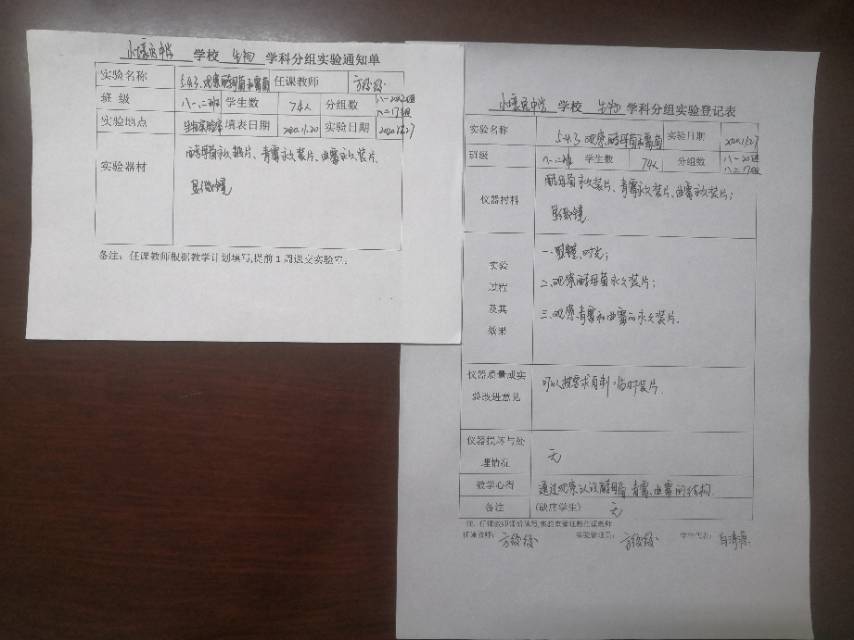 小壕兔中学 学校 生物 学科分组实验通知单
实验名称 5.4.3 观察酵母菌和霉菌 任课教师
班 级 八一、二班 学生数 74人 分组数 八一20组 八二17组
实验地点 生物实验室 填表日期 2020.11.20 实验日期
实验器材 酵母菌永久装片、青霉永久装片、曲霉永久装片、
显微镜
备注：任课教师根据教学计划填写,提前1周送交实验室。
小壕兔中学 学校 生物 学科分组实验登记表
实验名称 5.4.3 观察酵母菌和霉菌 实验日期
班级 八一、二班 学生数 74人 分组数 八一20组 八二17组
仪器材料 酵母菌永久装片、青霉永久装片、曲霉永久装片；
显微镜
实验
过程
及其
效果
一、取镜、对光；
二、观察酵母菌永久装片；
三、观察青霉和曲霉的永久装片.
仪器质量或实
验改进意见
可以按要求自制临时装片.
仪器损坏与处
理情况
无
教学心得 通过观察认识酵母菌、青霉、曲霉的结构.
备注 (缺席学生) 无
任课教师： 实验管理员： 学生代表：